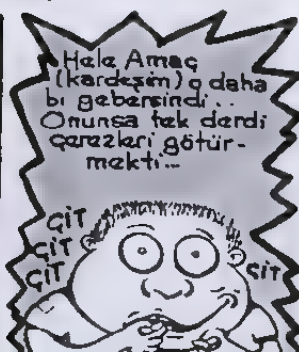 Hele Amaç
(kardeşim) o daha
bi gebersindi..
Onunsa tek derdi
çerezleri götür-
mekti...
ÇİT
ÇİT
ÇİT
ÇİT